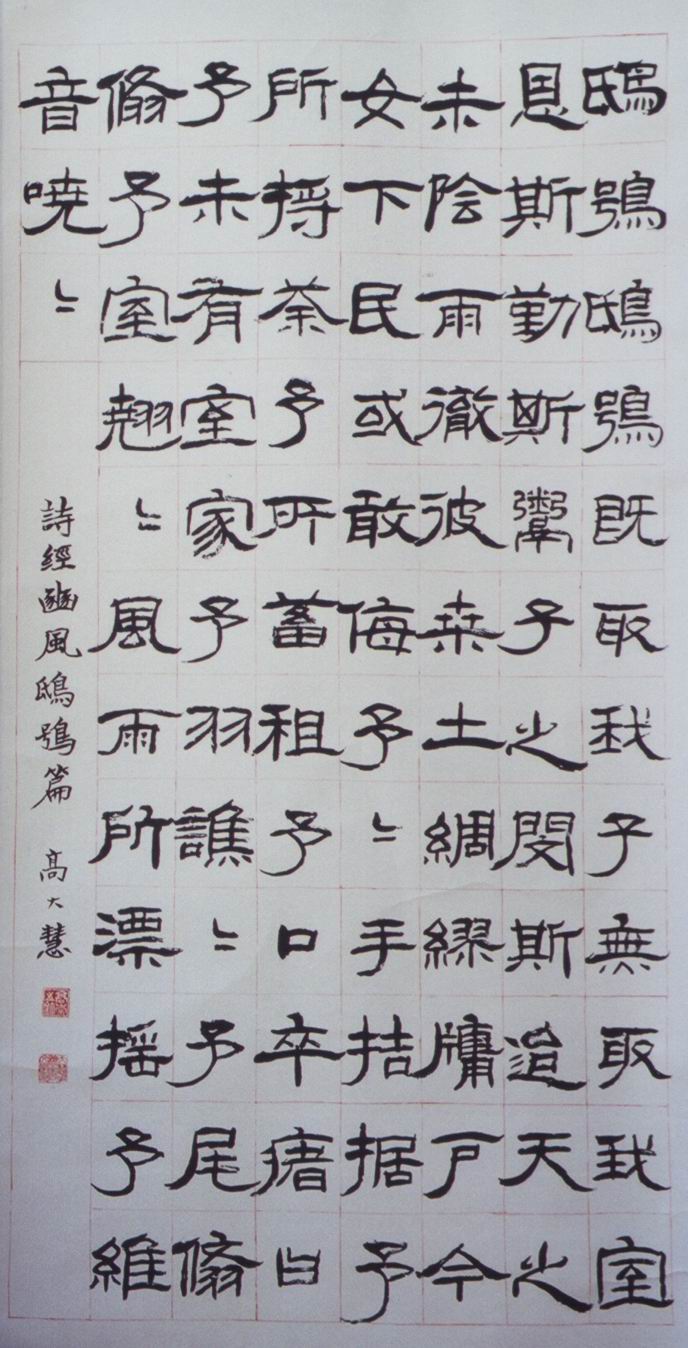 鴟鴞鴟鴞既取我子無取我室
恩斯勤斯鬻子之閔斯迨天之
未陰雨徹彼桑土綢繆牖戶今
女下民或敢侮予〻手拮据予
所捋荼予所蓄租予口卒瘏曰
予未有室家予羽譙〻予尾翛
翛予室翹〻風雨所漂搖予維
音嘵〻
詩經豳風鴟鴞篇 高大慧